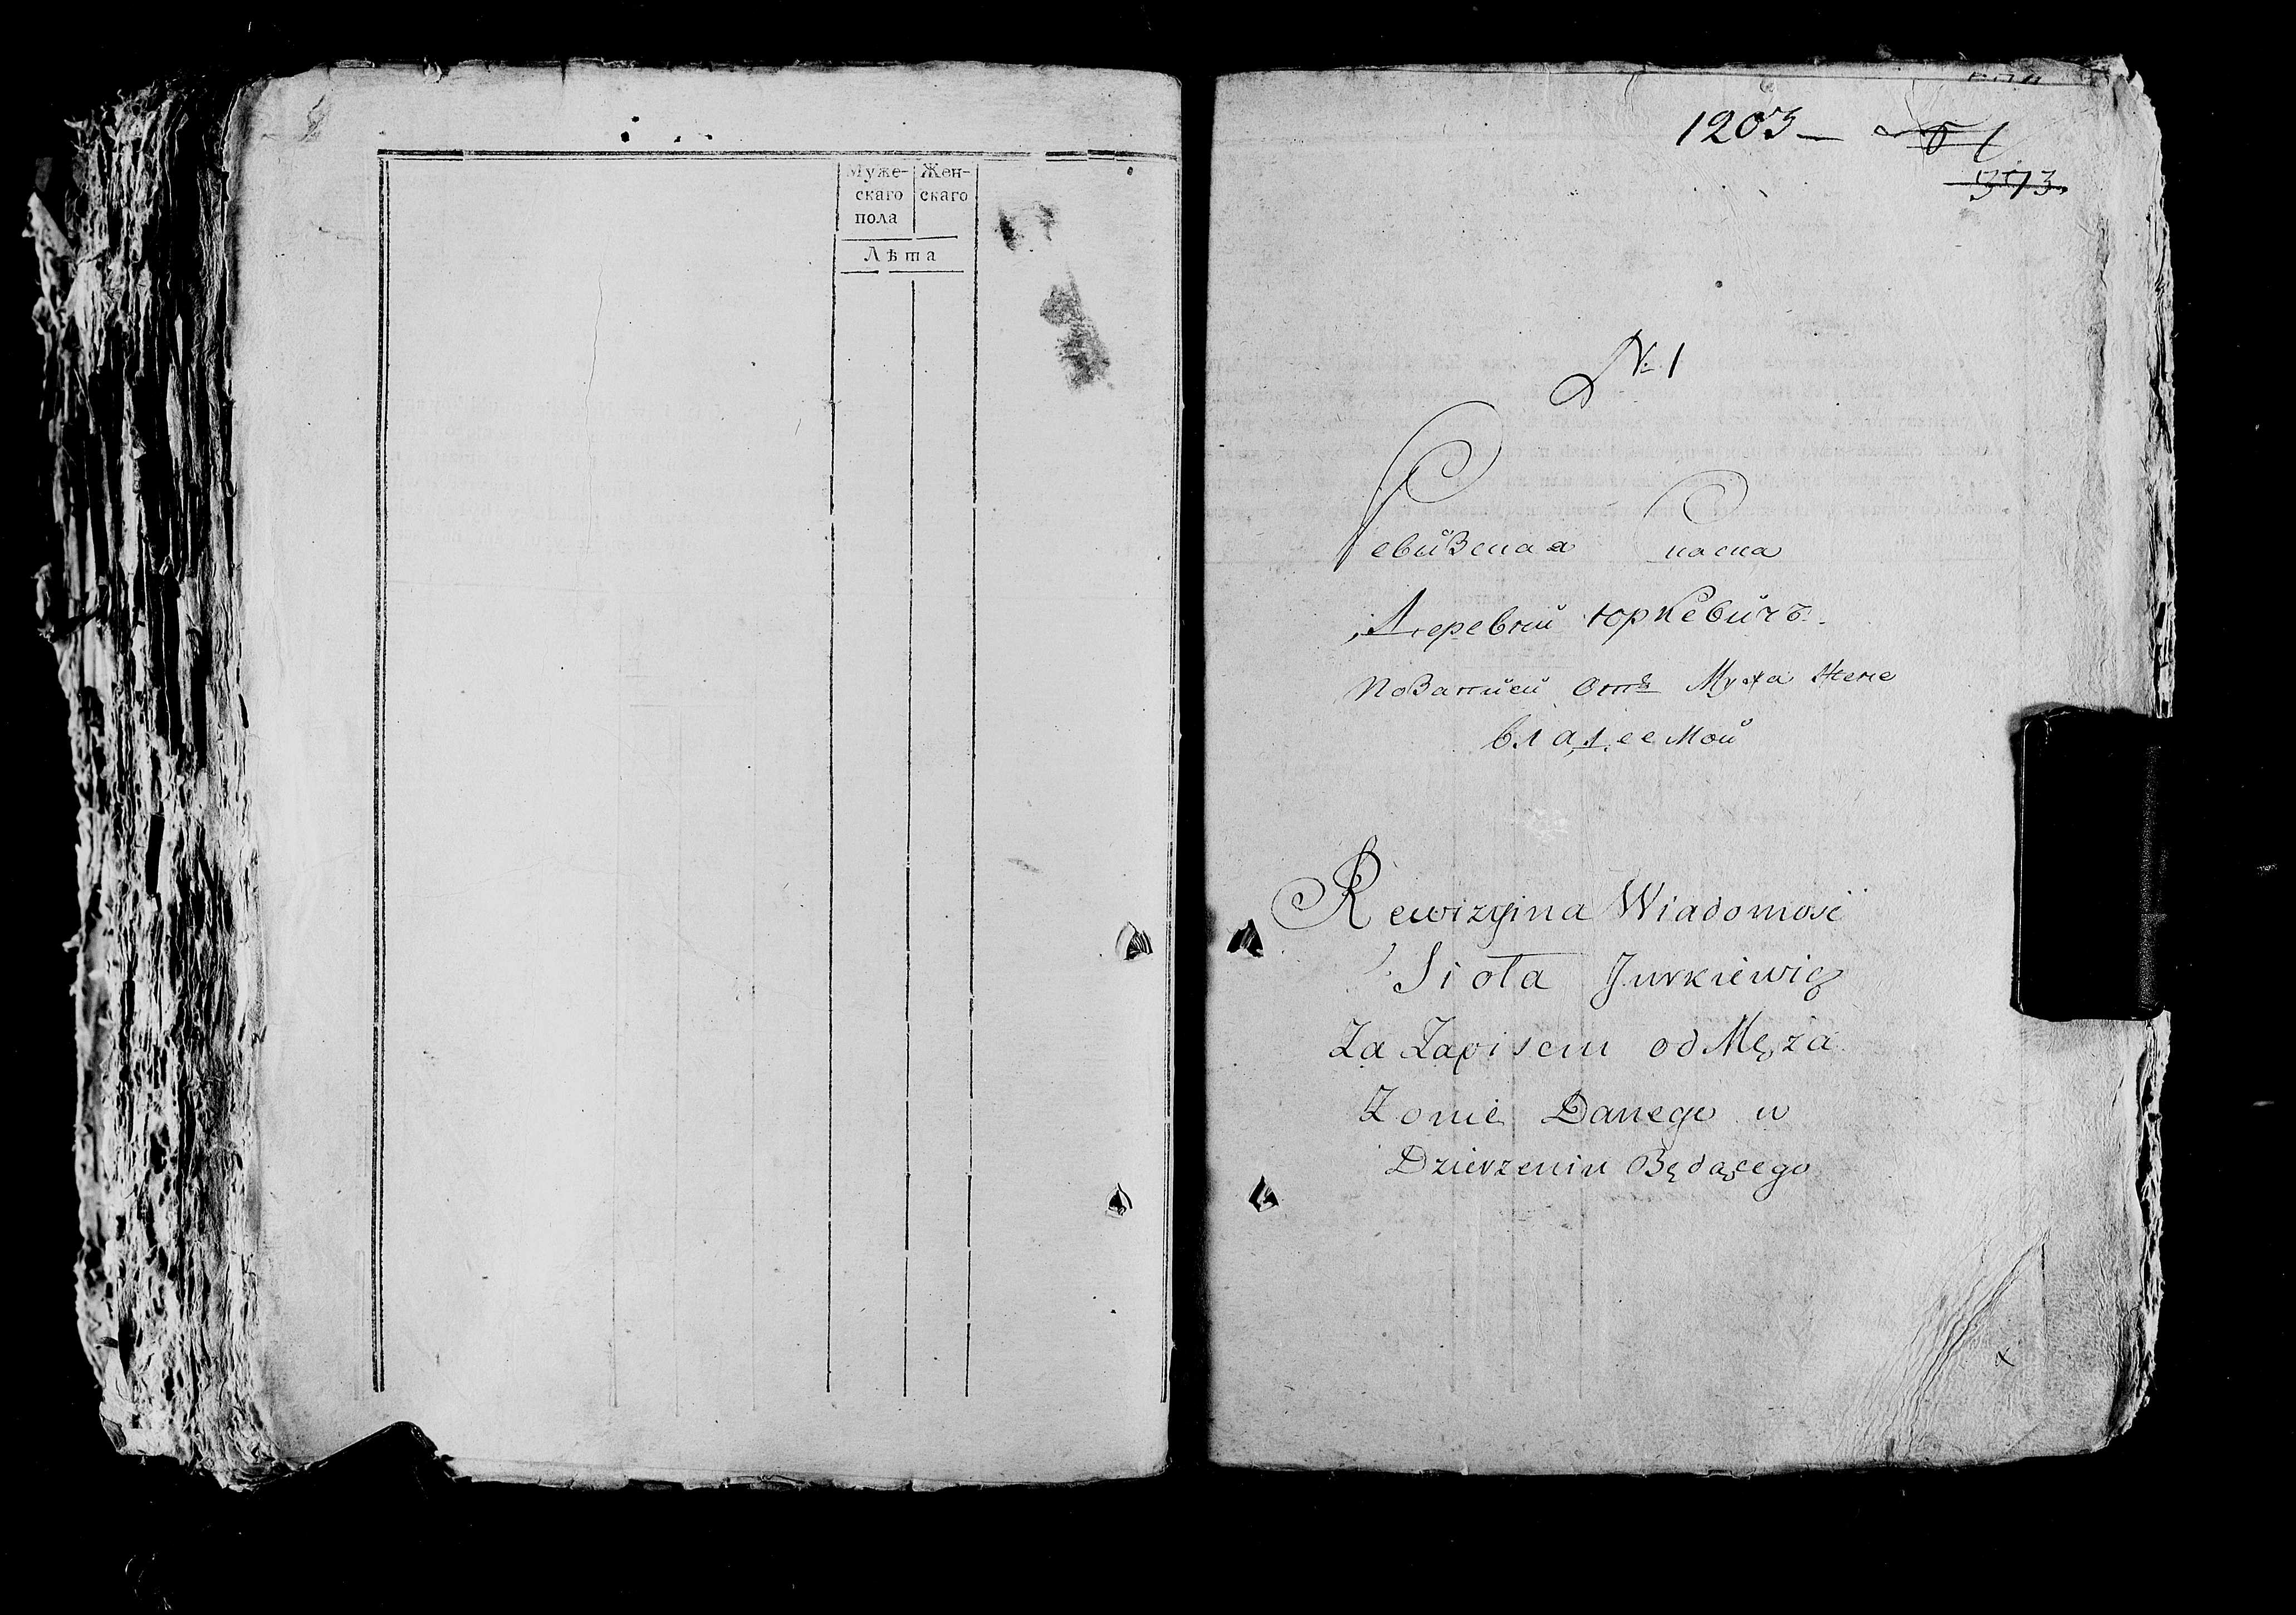 Муже- Жен-
скаго скаго
пола
Лѣта
1203
373.
№ 1
Ревизская Скаска
Деревни Юркевичъ
По Записи отъ Мужа Жене
владеемой
Rewizyina Wiadomość
Sioła Jurkiewicz
Za Zapisem od Męża
Zonie Danego w
Dzierzeniu Będącego